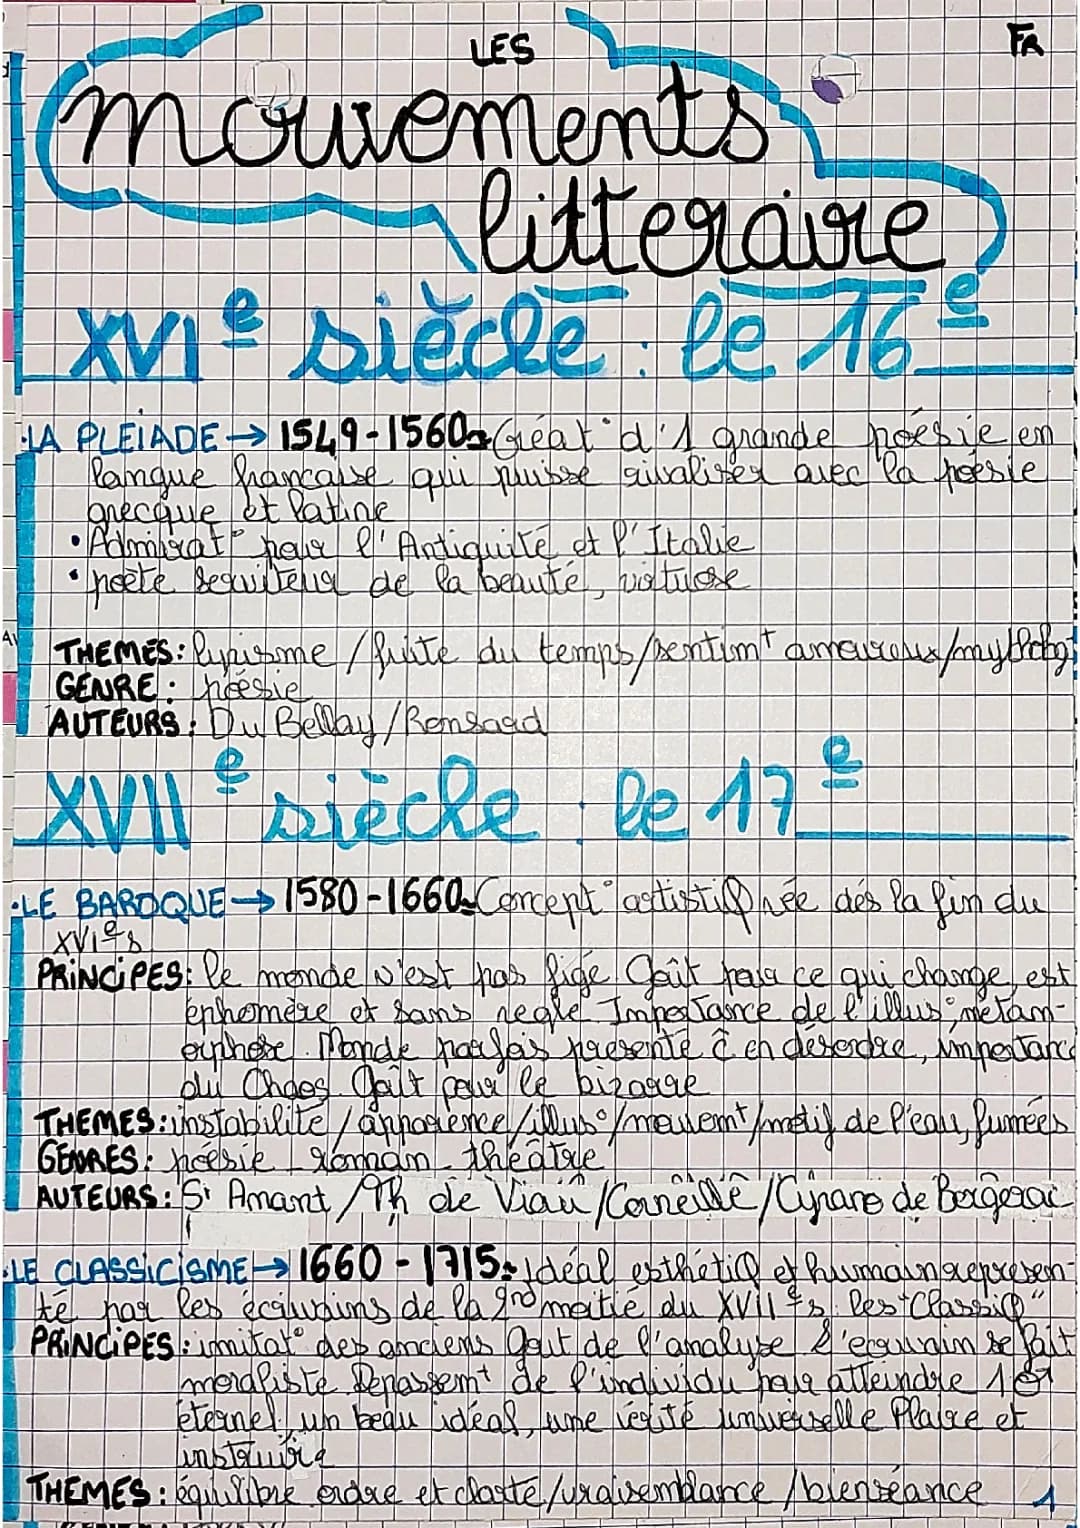 LES
FR
mouvements
litteraire
XVIe siècle : le 16e
·LA PLEIADE → 1549-1560 Créat° d'1 grande poésie en
langue française qui puisse rivaliser avec la poésie
grecque et latine
• Admirat° pour l'Antiquité et l'Italie
• poète serviteur de la beauté, virtuose
THEMES: lyrisme / fuite du temps/sentimt amoureux/mytholog
GENRE : poésie
AUTEURS : Du Bellay / Ronsard
XVIIe siècle : le 17e
·LE BAROQUE → 1580-1660 Concept° artistiQ née dés la fin du
XVIes
PRINCIPES: le monde n'est pas figé Goût pour ce qui change, est
éphemère et sans regle Importance de l'illus°, metam-
orphose. Monde parfois présenté ê en désordre, importance
du Chaos Goût pour le bizarre
THEMES: instabilité / apparence/illus°/mouvemt/motif de l'eau, fumées
GENRES: poésie - roman - théâtre
AUTEURS: St Amant / Th de Viau / Corneille / Cyrano de Bergerac
·LE CLASSICISME → 1660 - 1715 idéal esthétiQ et humain représen-
té par les écrivains de la 2nd moitié du XVIIes les "ClassiQ"
PRINCIPES : imitat° des anciens Gout de l'analyse L'ecrivain se fait
moraliste Dépassemt de l'individu pour atteindre 1
éternel, un beau idéal, une vérité universelle Plaire et
instruire
THEMES : équilibre ordre et clarté / vraisemblance / bienséance
1